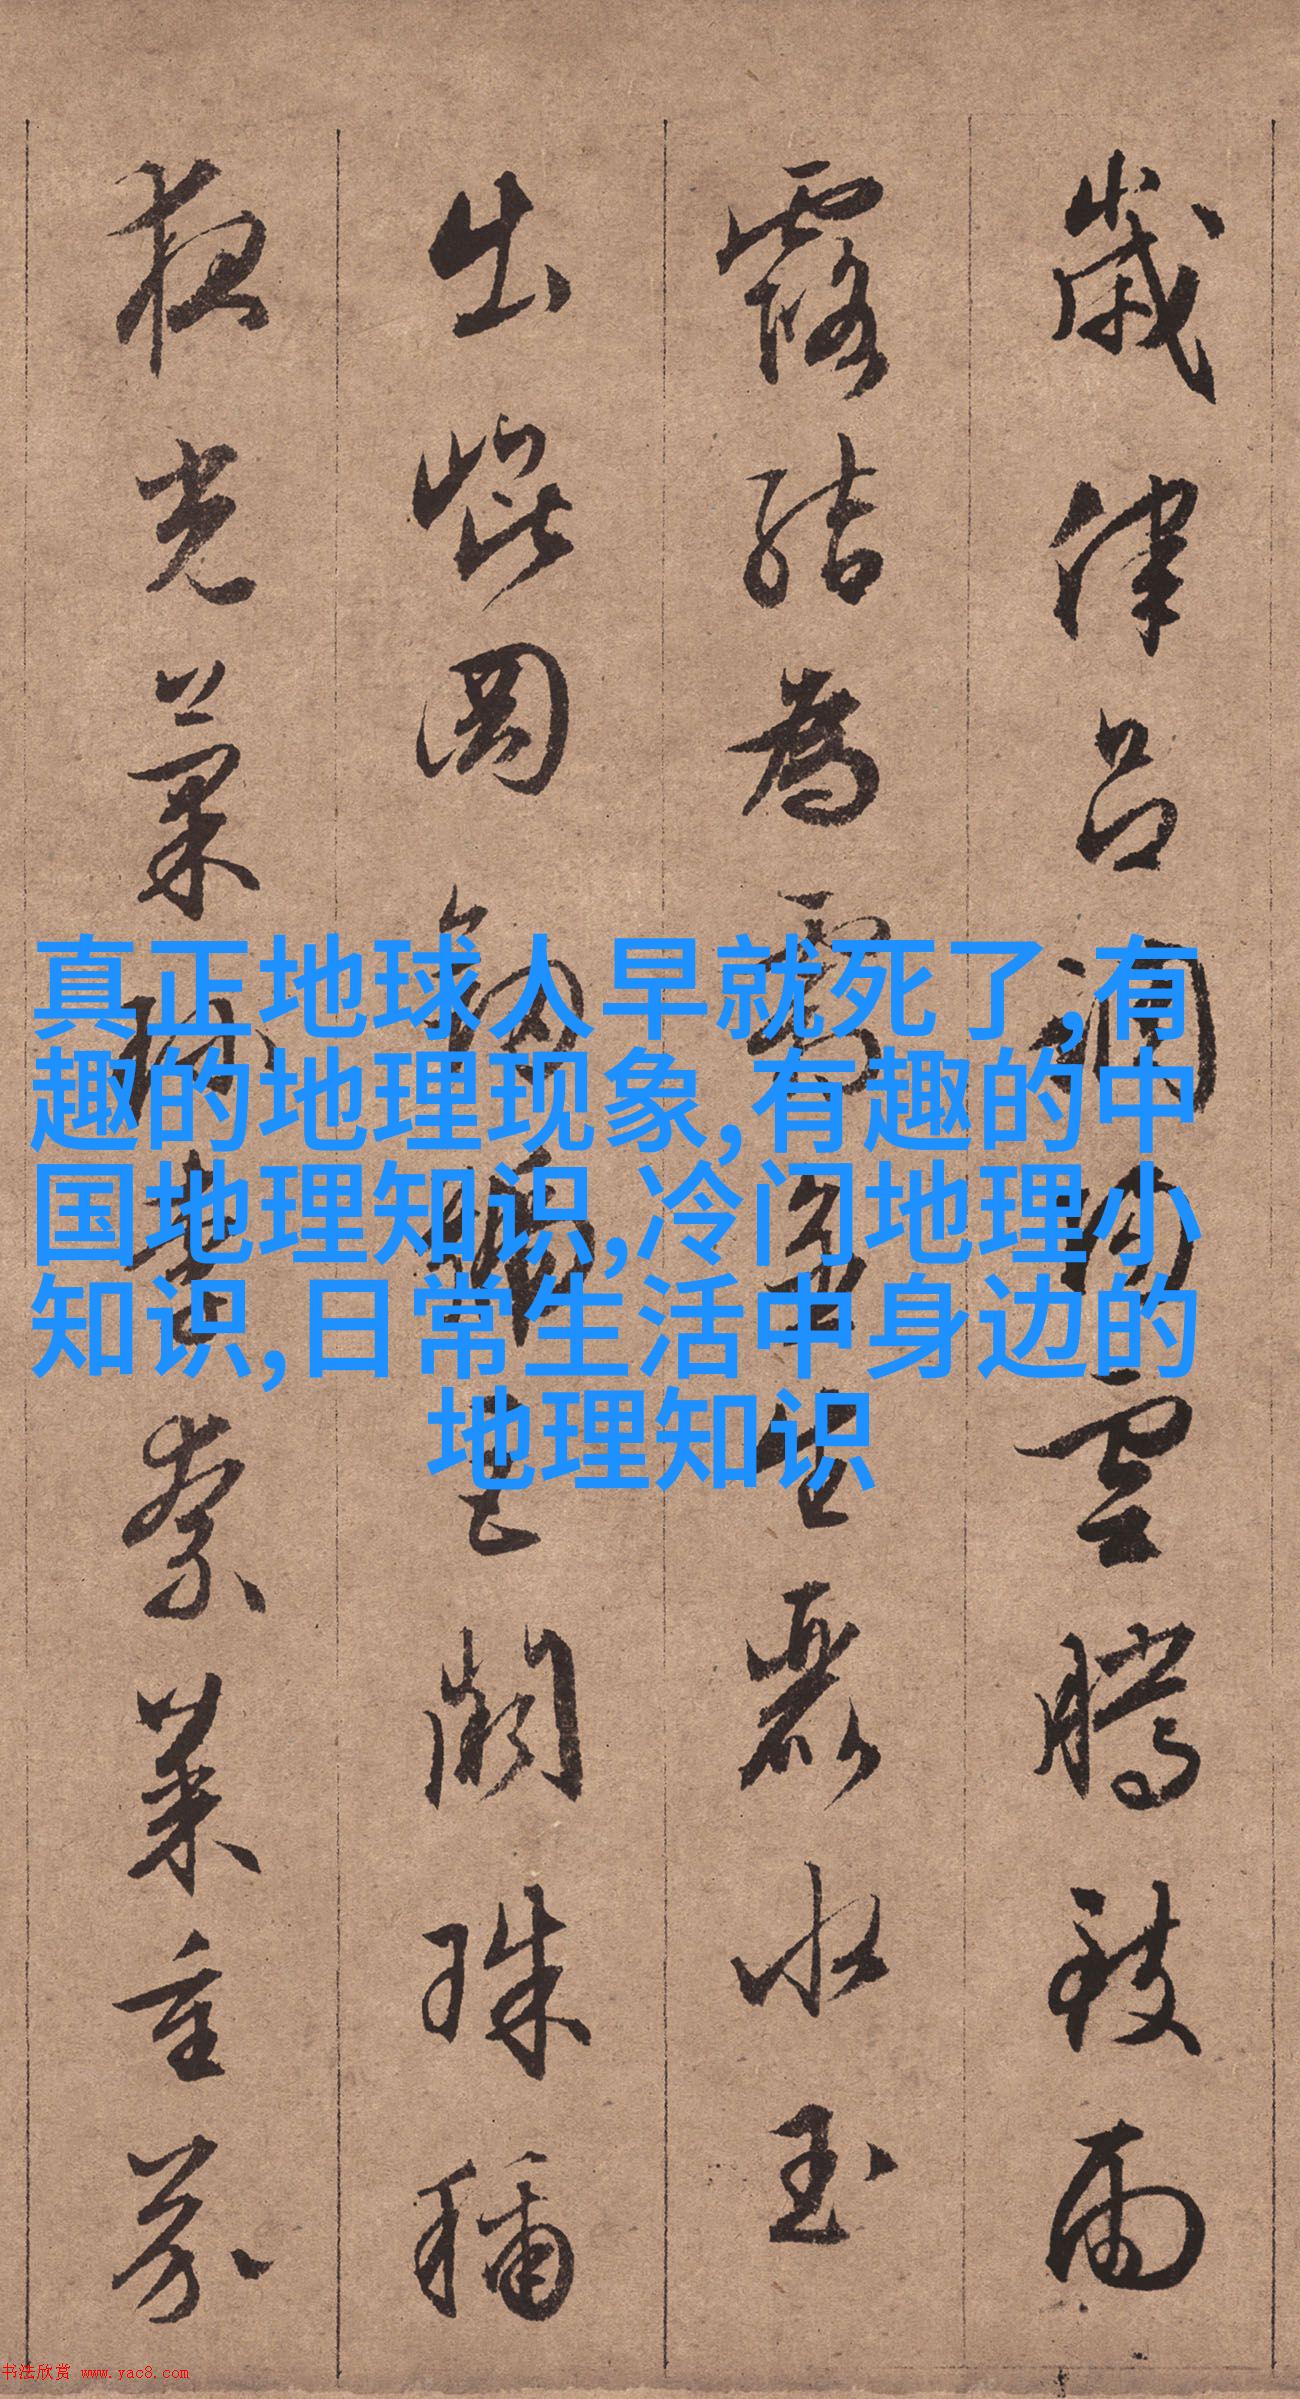 歲律呂調陽雲騰致雨
露結為霜金生麗水玉
出崐岡劍號巨闕珠稱
夜光菓珍李柰菜重芥
真正地球人早就死了,有
趣的地理现象,有趣的中
国地理知识,冷门地理小
知识,日常生活中身边的
地理知识
书法欣赏 www.yac8.com